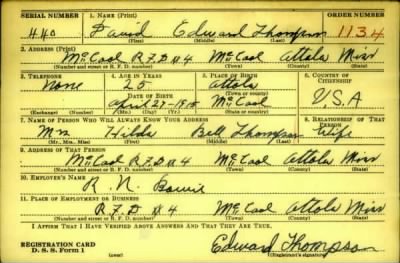 SERIAL NUMBER 1. NAME (Print) ORDER NUMBER
440 David Edward Thompson 1134
(First) (Middle) (Last)
2. ADDRESS (Print)
McCool R.F.D #4 McCool Attala Miss
(Number and street or R. F. D. number) (Town) (County) (State)
3. TELEPHONE 4. AGE IN YEARS 5. PLACE OF BIRTH 6. COUNTRY OF CITIZENSHIP
None 25 Attala
(Town or county)
DATE OF BIRTH
April 27-1915 McCool U.S.A
(Exchange) (Number) (Mo.) (Day) (Yr.) (State or country)
7. NAME OF PERSON WHO WILL ALWAYS KNOW YOUR ADDRESS 8. RELATIONSHIP OF THAT PERSON
Mrs Hilda Bell Thompson Wife
(Mr., Mrs., Miss) (First) (Middle) (Last)
9. ADDRESS OF THAT PERSON
McCool R.F.D #4 McCool Attala Miss
(Number and street or R. F. D. number) (Town) (County) (State)
10. EMPLOYER'S NAME
R. N.
11. PLACE OF EMPLOYMENT OR BUSINESS
R.F.D #4 McCool Attala Miss
(Number and street or R. F. D. number) (Town) (County) (State)
I AFFIRM THAT I HAVE VERIFIED ABOVE ANSWERS AND THAT THEY ARE TRUE.
REGISTRATION CARD
D. S. S. Form 1 (over) Edward Thompson
(Registrant's signature)